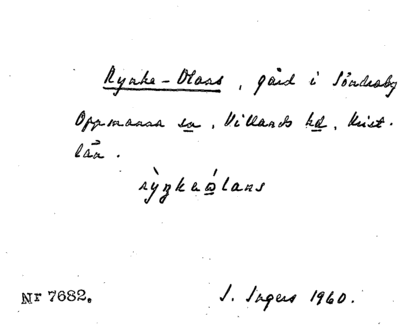 Rynke-Olans, gård i Söndraby
Oppmanna sn, Villands hd, Krist.
län.
rỳŋkaólans
Nr 7682. I. Ingers 1960.